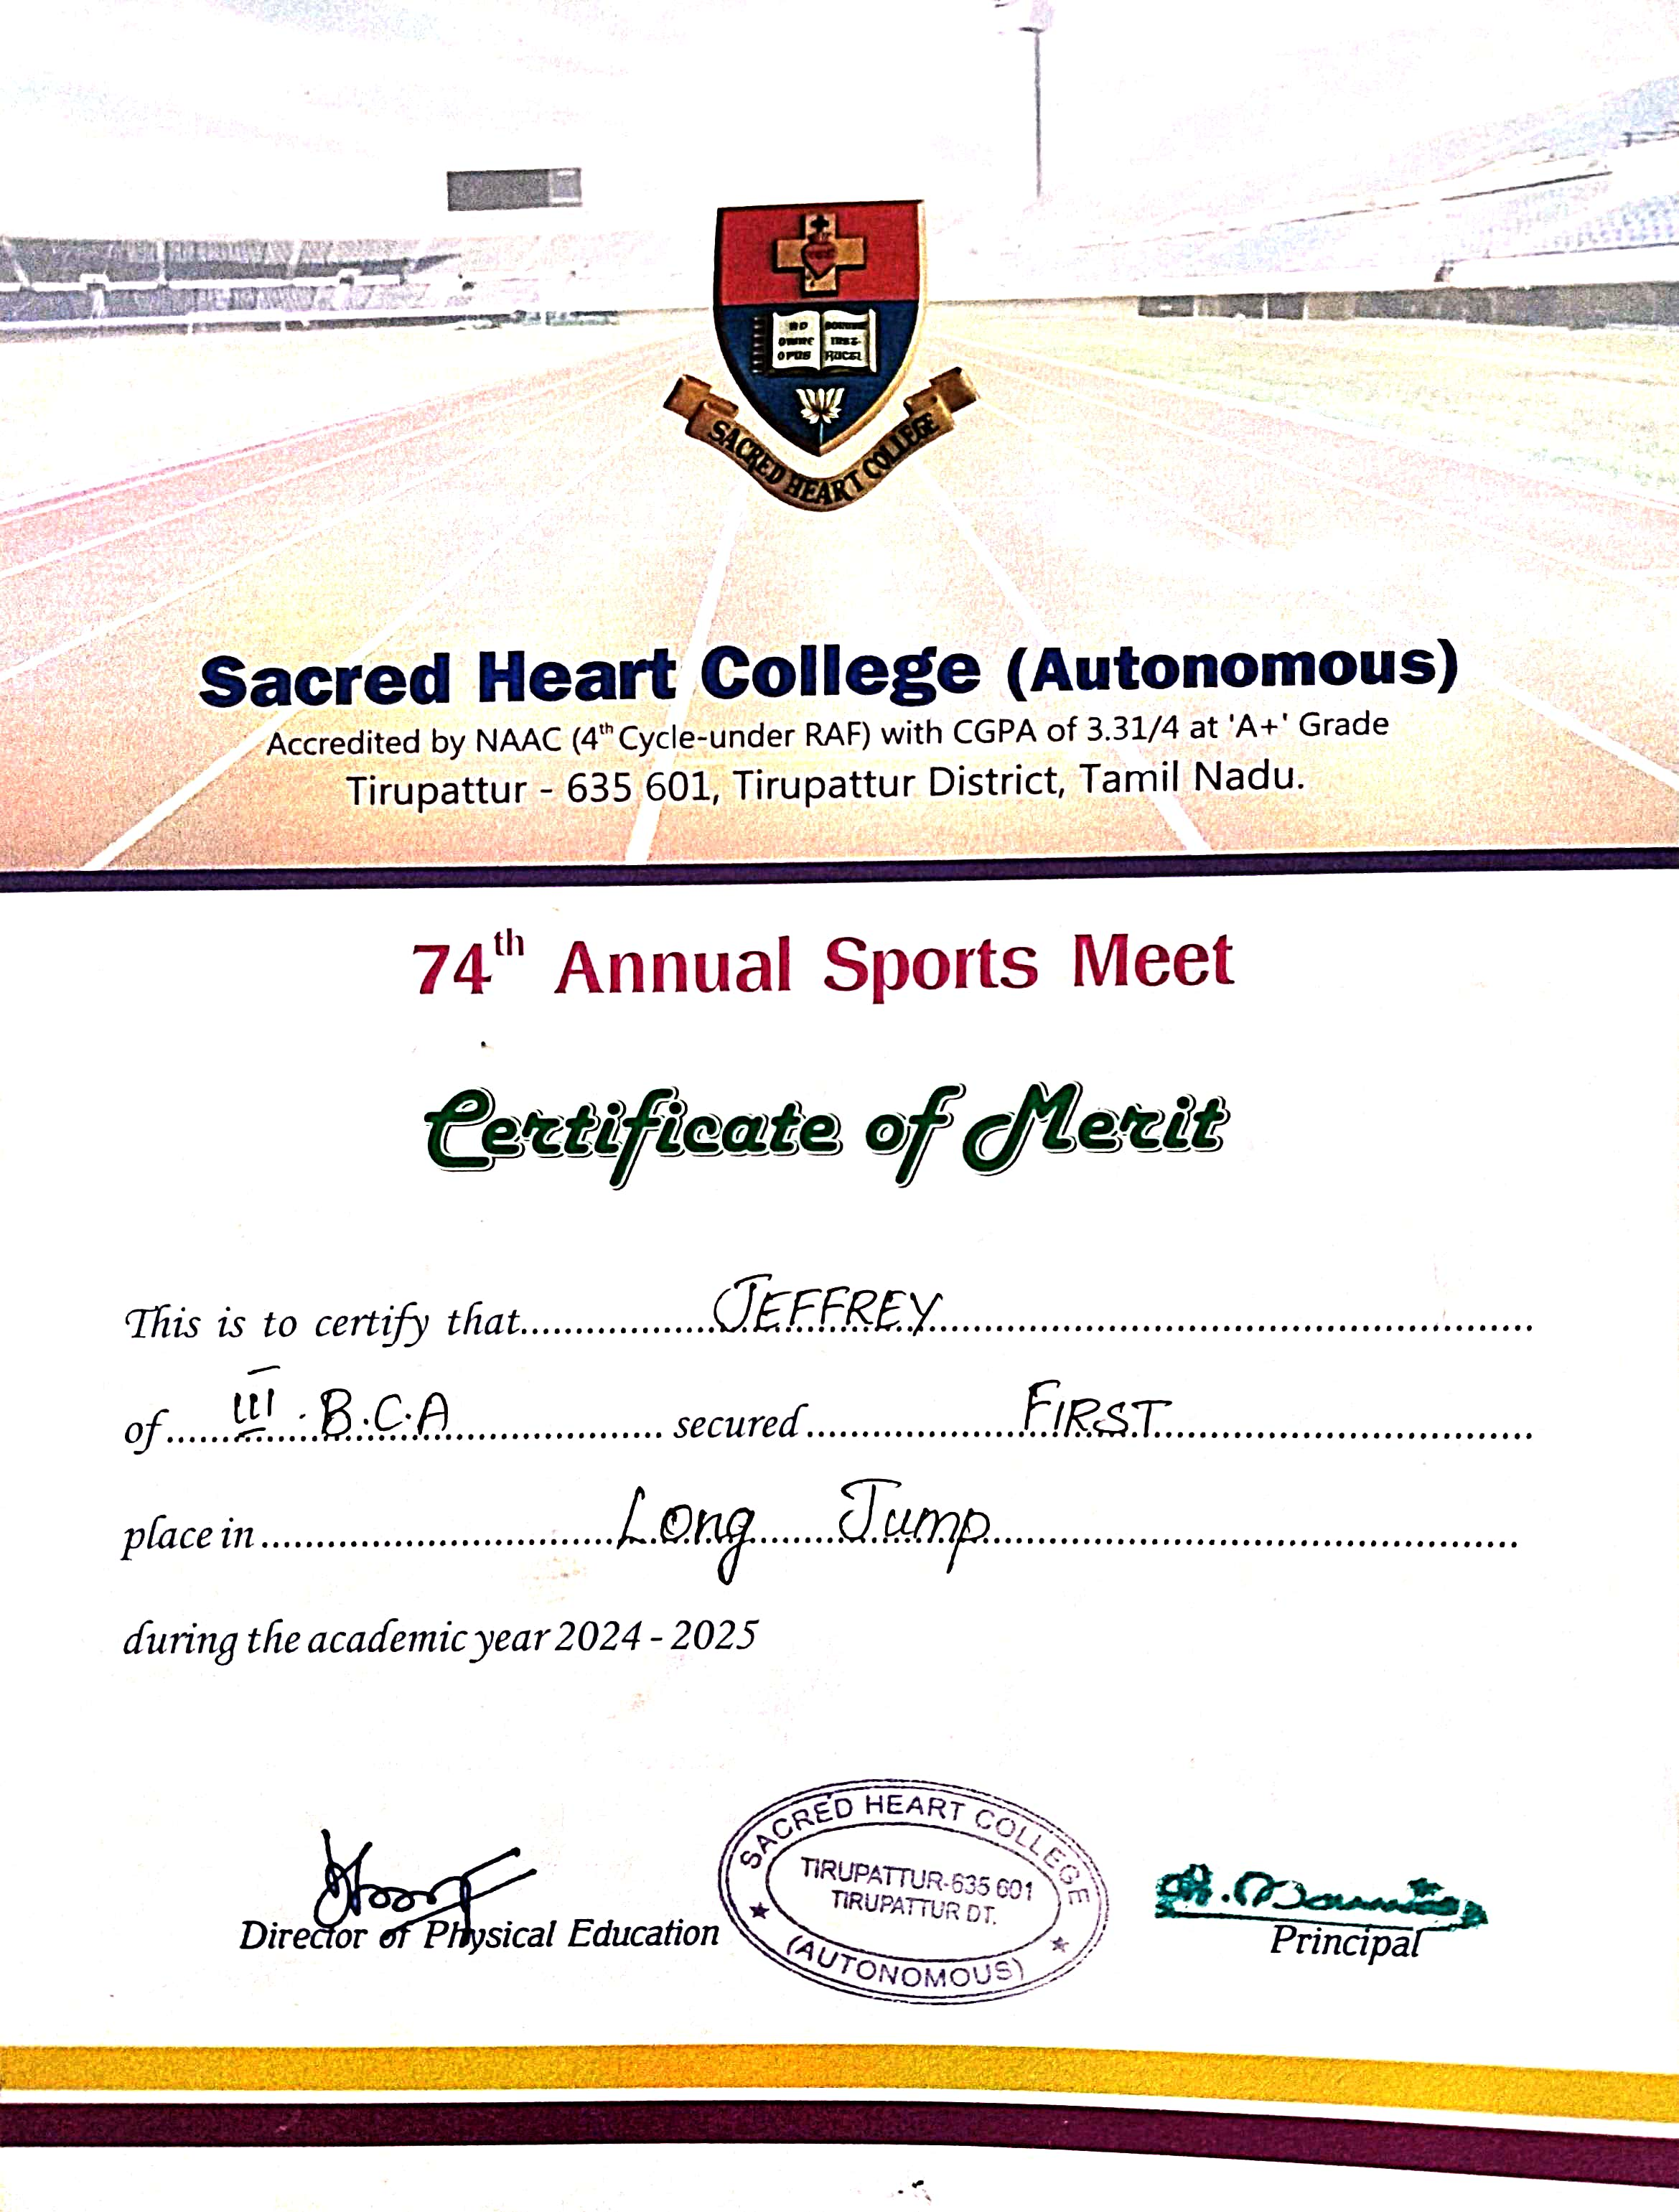 AD OMNE OPUS
BONUM INST-RUCTI
SACRED HEART COLLEGE
Sacred Heart College (Autonomous)
Accredited by NAAC (4th Cycle-under RAF) with CGPA of 3.31/4 at 'A+' Grade
Tirupattur - 635 601, Tirupattur District, Tamil Nadu.
74th Annual Sports Meet
Certificate of Merit
This is to certify that JEFFREY
of III. B.C.A secured FIRST
place in Long Jump
during the academic year 2024 - 2025
Director of Physical Education
SACRED HEART COLLEGE
TIRUPATTUR-635 601
TIRUPATTUR DT.
(AUTONOMOUS)
Principal